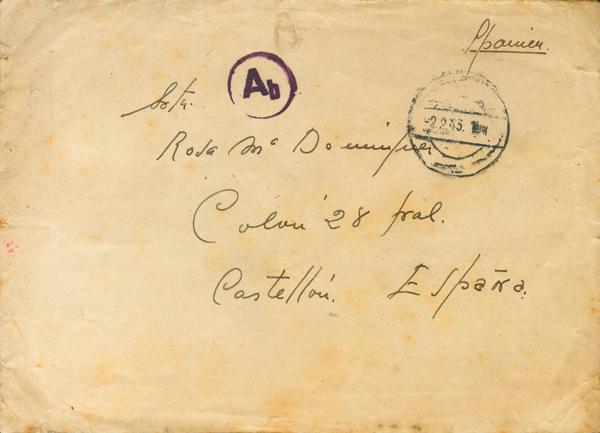 Spanien.
Ab
2.2.43.
Srta.
Rosa Mª Dominguez
Colón 28 pral.
Castellón. España.